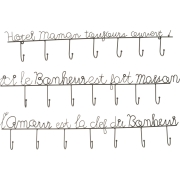 Hotel Maman toujours ouvert !
ici le Bonheur est fait maison
L'amour est la clef du Bonheur